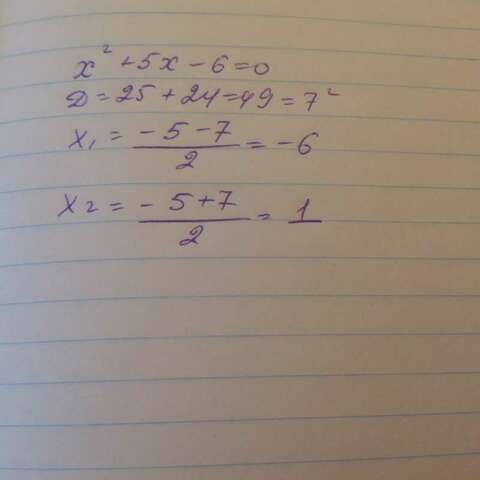 x² + 5x - 6 = 0
D = 25 + 24 = 49 = 7²
x₁ = (-5 - 7)/2 = -6
x₂ = (-5 + 7)/2 = 1